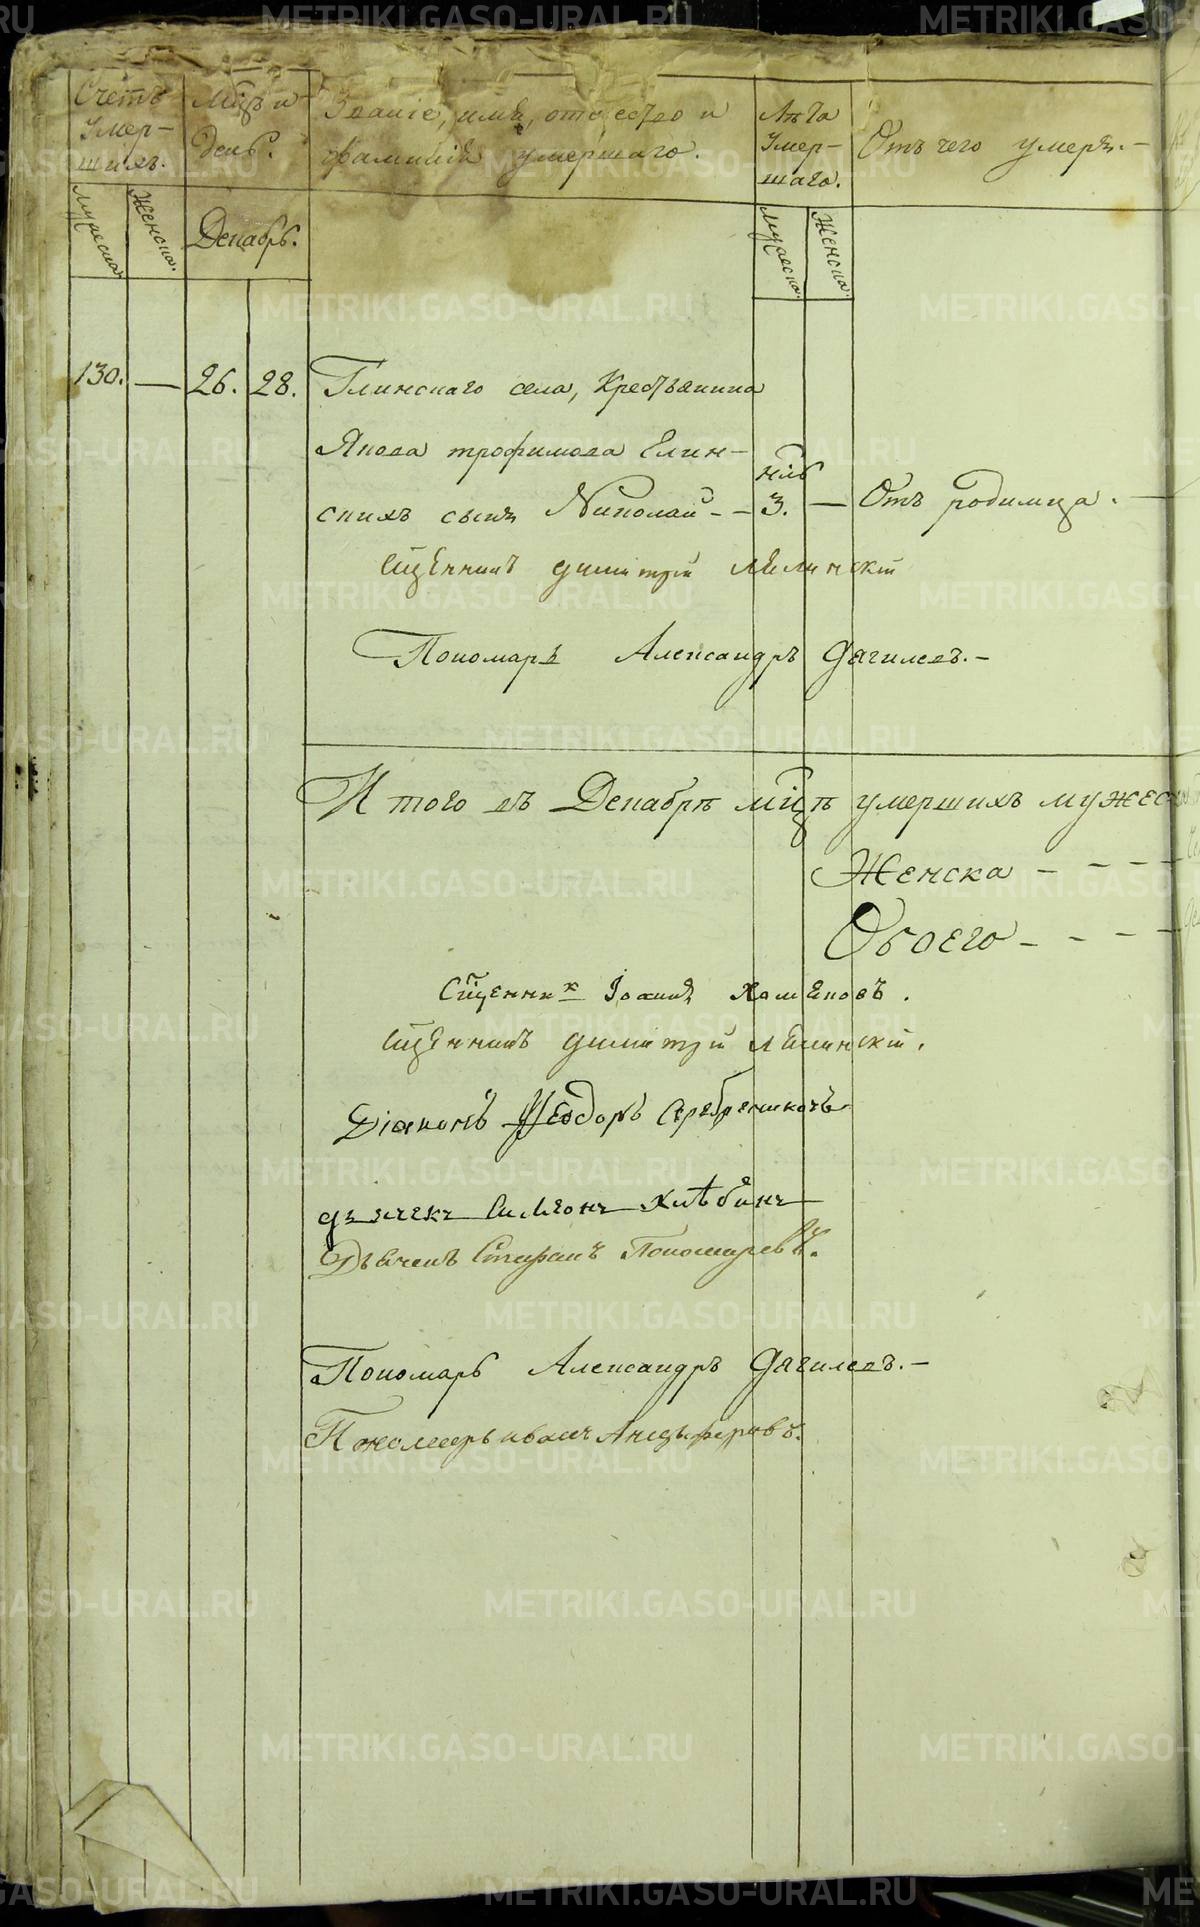 Счетъ умер-шихъ.
Мцъ и день.
Званіе, имя, отчество и
фамилія умершаго.
Лѣта умер-шаго.
Отъ чего умеръ.
Мужеска
Женска.
Декабрь.
Мужеска.
Женска.
130. — 26. 28. Глинскаго села, Крестьянина
Якова трофимова Елин-
скихъ сынъ Николай - - 3. нѣд — Отъ родимца. —
Сщенникъ Димитрій
Пономарь Александръ Дягилевъ. —
Итого въ Декабрѣ мцѣ умершихъ мужес
Женска - - - -
Обоего - - - -
Сщенникъ Іоаннъ Хомяковъ.
Сщенникъ Димитрій
Діаконъ Ѳеодоръ Серебрениковъ
дьячекъ Симеонъ Хлѣбинъ
Дьячекъ Стефанъ Пономаревъ.
Пономарь Александръ Дягилевъ. —
Пономарь иванъ Анцыферовъ.
METRIKI.GASO-URAL.RU